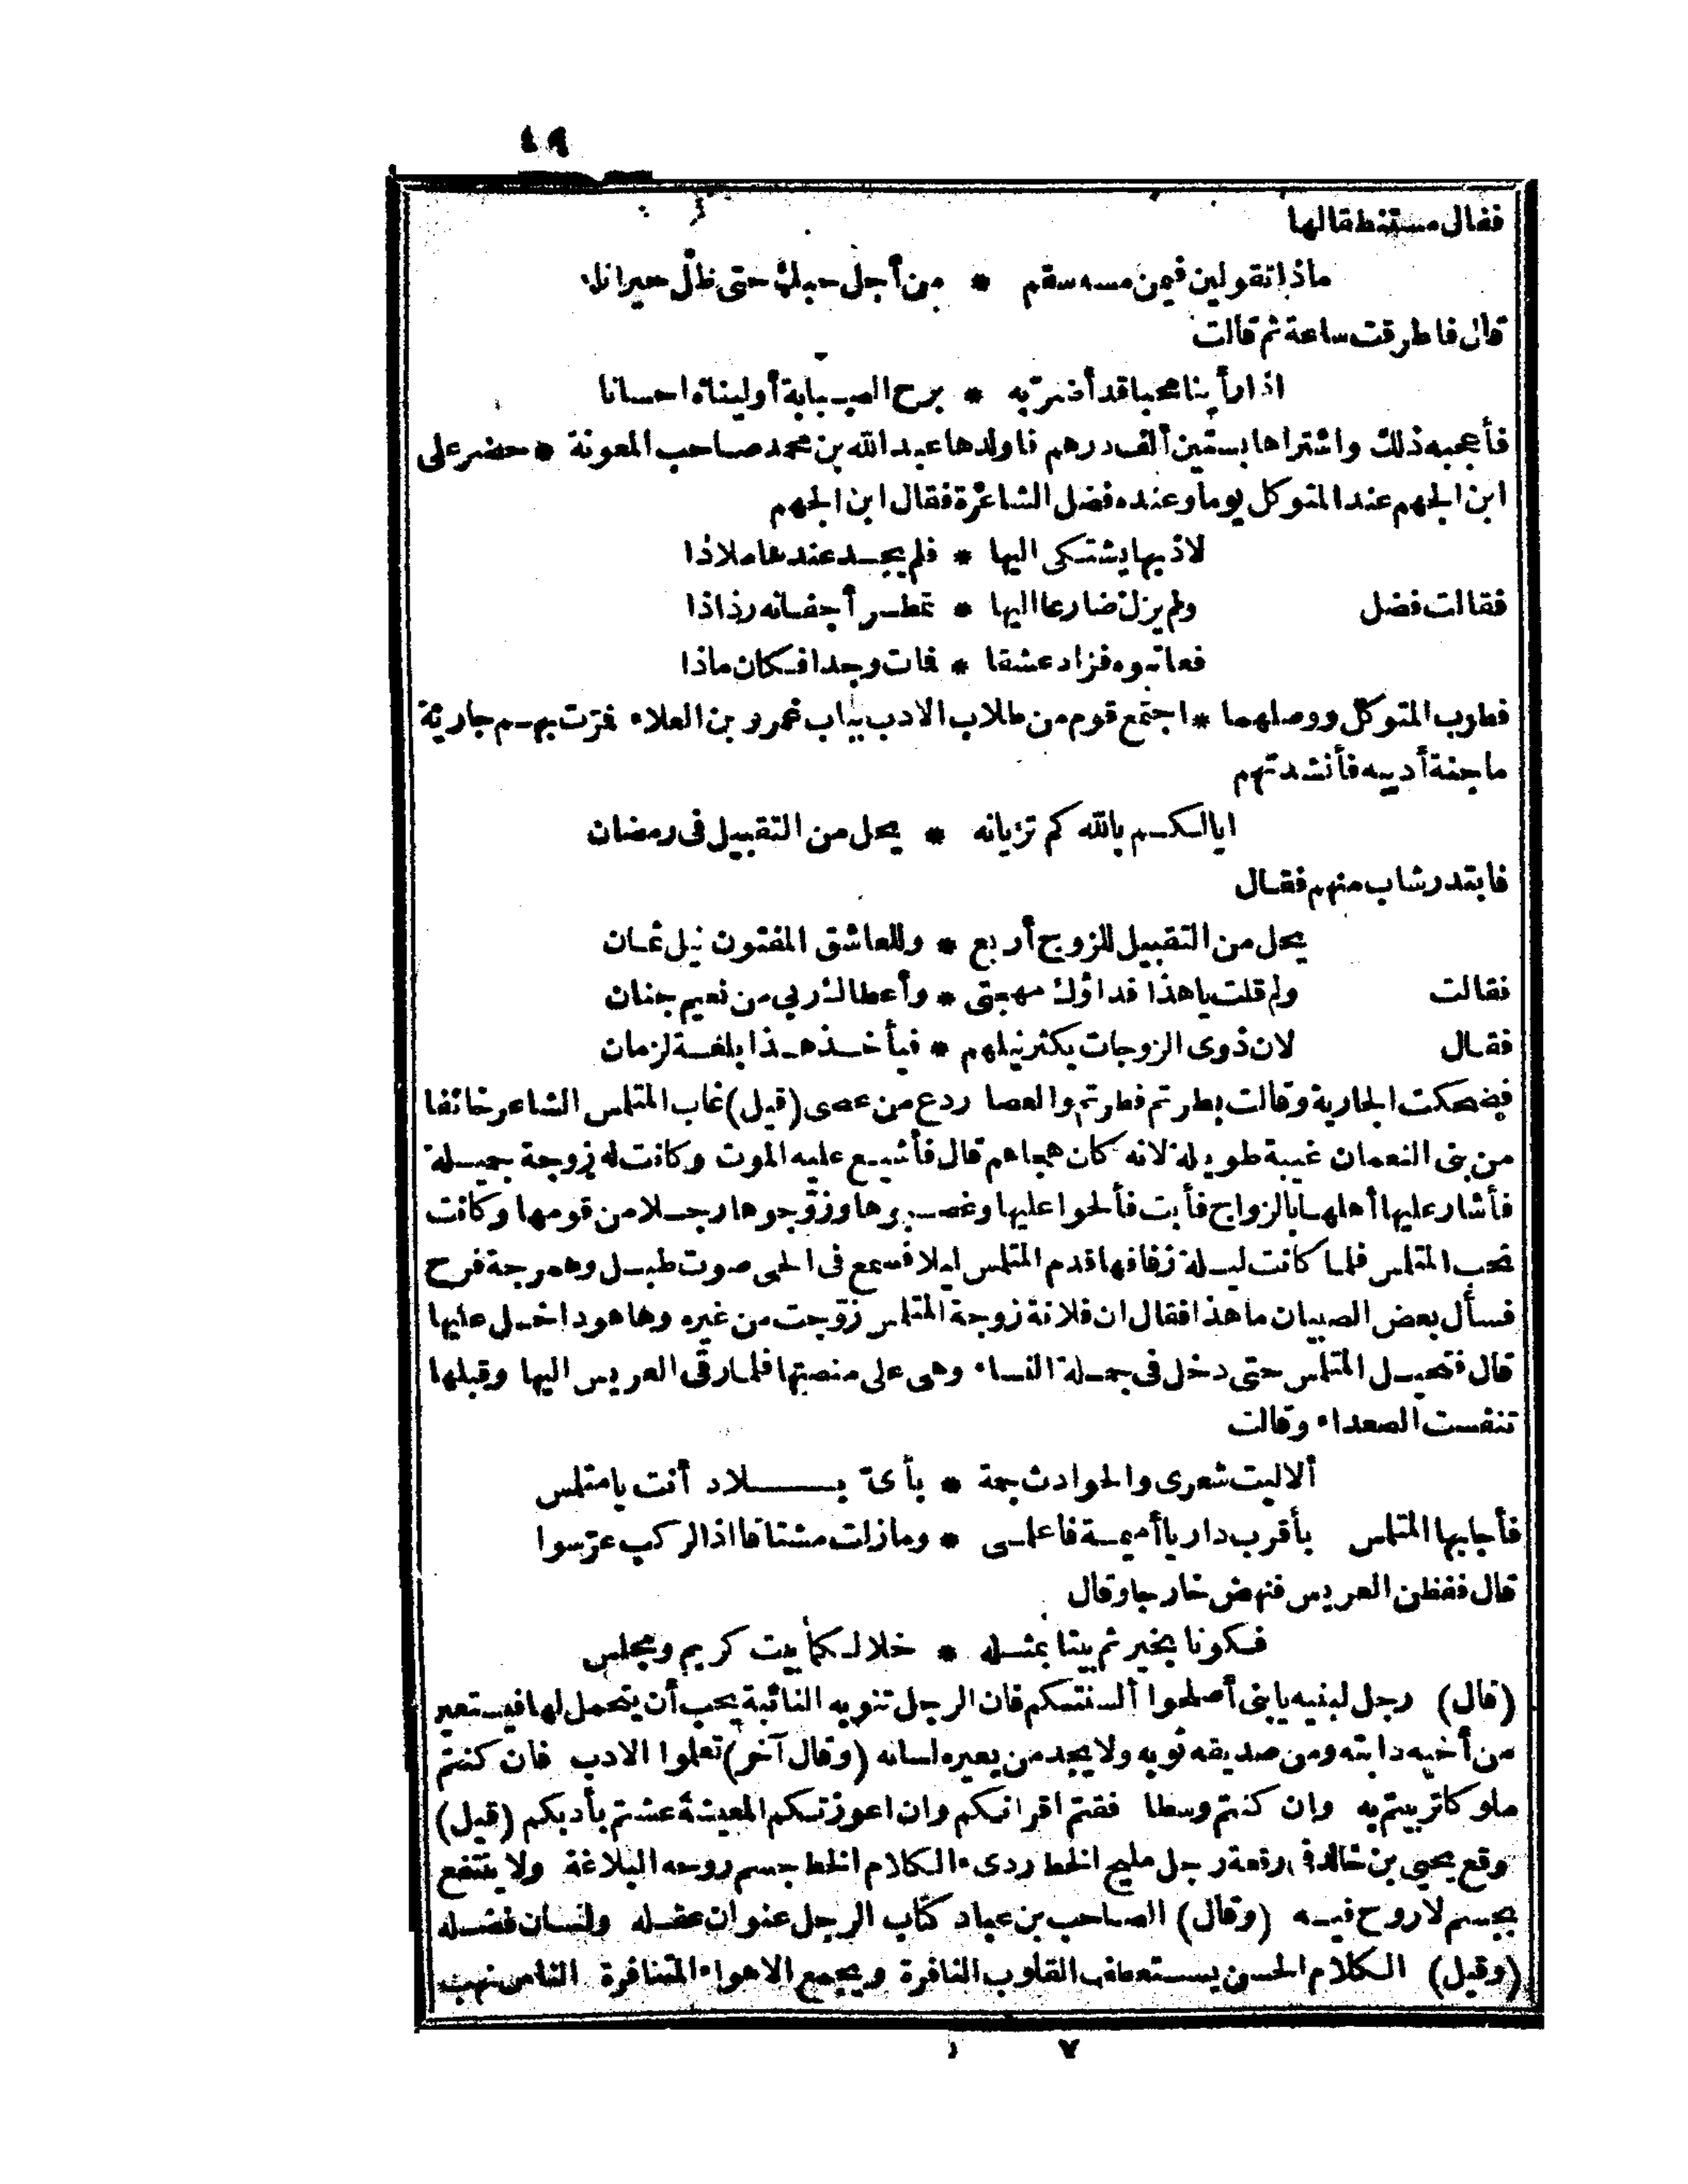 ٤٩
فقال مستنطقا لها
ماذا تقولين فيمن مسه سقم * من أجل حبك حتى ظل حيرانا
قال فاطرقت ساعة ثم قالت
اذا رأينا محبا قد أضر به * برح الصبابة أوليناه احسانا
فأعجبه ذلك واشتراها بستين ألف درهم فاولدها عبد الله بن محمد صاحب المعونة * حضر على
ابن الجهم عند المتوكل يوما وعنده فضل الشاعرة فقال ابن الجهم
لاذ بها يشتكى اليها * فلم يجد عندها ملاذا
فقالت فضل ولم يزل ضارعا اليها * تمطر أجفانه رذاذا
فعاتبوه فزاد عشقا * فمات وجدا فكان ماذا
فطرب المتوكل ووصلهما * اجتمع قوم من طلاب الادب بباب عمرو بن العلاء فمرت بهم جارية
ماجنة أديبه فأنشدتهم
ايا لكم بالله كم تريانه * يحل من التقبيل فى رمضان
فابتدر شاب منهم فقال
يحل من التقبيل للزوج أربع * وللعاشق المفتون نيل ثمان
فقالت ولم قلت يا هذا فداؤك مهجتى * وأعطاك ربى من نعيم جنان
فقال لان ذوى الزوجات يكثر نيلهم * فيأخذ هذا بلغة لزمان
فضحكت الجارية وقالت بطرتم فطرتم والعصا ردع من عصى (قيل) غاب المتلمس الشاعر خائفا
من بنى النعمان غيبة طويلة لانه كان هجاهم قال فأشيع عليه الموت وكانت له زوجة جميلة
فأشار عليها أهلها بالزواج فأبت فألحوا عليها وغصبوها وزوجوها رجلا من قومها وكانت
تحب المتلمس فلما كانت ليلة زفافها قدم المتلمس ليلا فسمع فى الحى صوت طبل وهمرجة فرح
فسأل بعض الصبيان ما هذا فقال ان فلانة زوجة المتلمس زوجت من غيره وها هو داخل عليها
قال فتحيل المتلمس حتى دخل فى جملة النساء وهى على منصتها فلما رقى العريس اليها وقبلها
تنفست الصعداء وقالت
ألا ليت شعرى والحوادث جمة * بأى بلاد أنت يا متلمس
فأجابها المتلمس بأقرب دار يا أميمة فاعلمى * وما زلت مشتاقا اذا الركب عرسوا
قال ففظن العريس فنهض خارجا وقال
فكونا بخير ثم بيتا بمثله * خلا لكما بيت كريم ومجلس
(قال) رجل لبنيه يا بنى أصلحوا ألسنتكم فان الرجل تنوبه النائبة يحب أن يتحمل لها فيستعير
من أخيه دابته ومن صديقه ثوبه ولا يجد من يعيره لسانه (وقال آخر) تعلموا الادب فان كنتم
ملوكا تربيتم به وان كنتم وسطا فقتم اقرانكم وان اعوزتكم المعيشة عشتم بأدبكم (قيل)
وقع يحيى بن خالد فى رقعة رجل مليح الخط ردىء الكلام الخط جسم روحه البلاغة ولا ينتفع
بجسم لا روح فيه (وقال) الصاحب بن عباد كتاب الرجل عنوان عقله ولسان فضله
(وقيل) الكلام الحسن يستعطف القلوب النافرة ويجمع الاهواء المتنافرة الناس نهب
٧